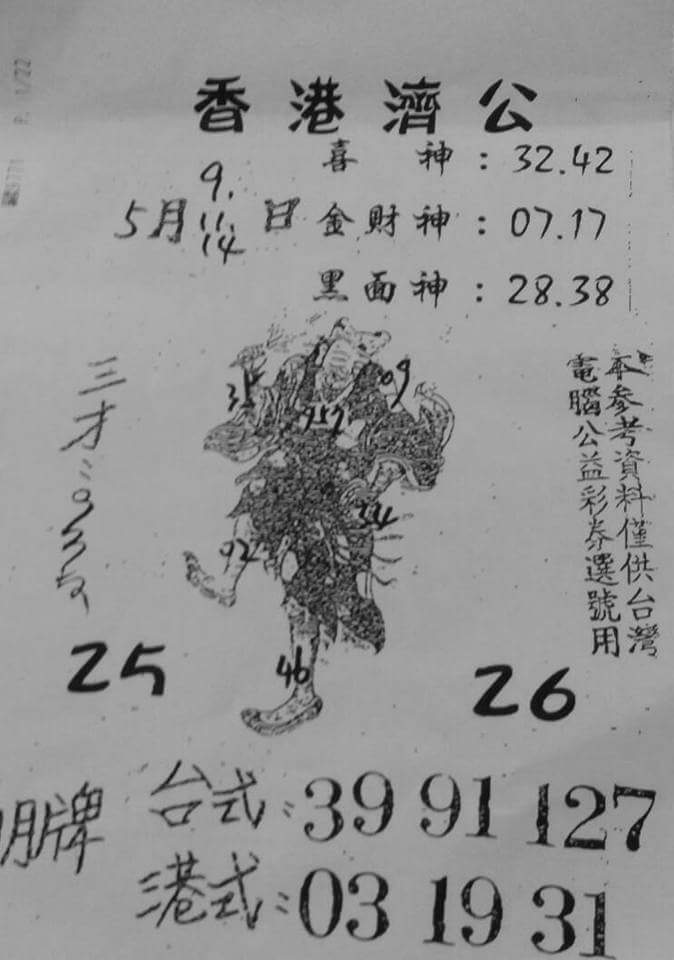 香港濟公
喜神：32.42
5月9.11.14日
金財神：07.17
黑面神：28.38
本參考資料僅供台灣
電腦公益彩券選號用
35
09
957
34
92
46
三才：035
25
26
明牌
台式：39 91 127
港式：03 19 31